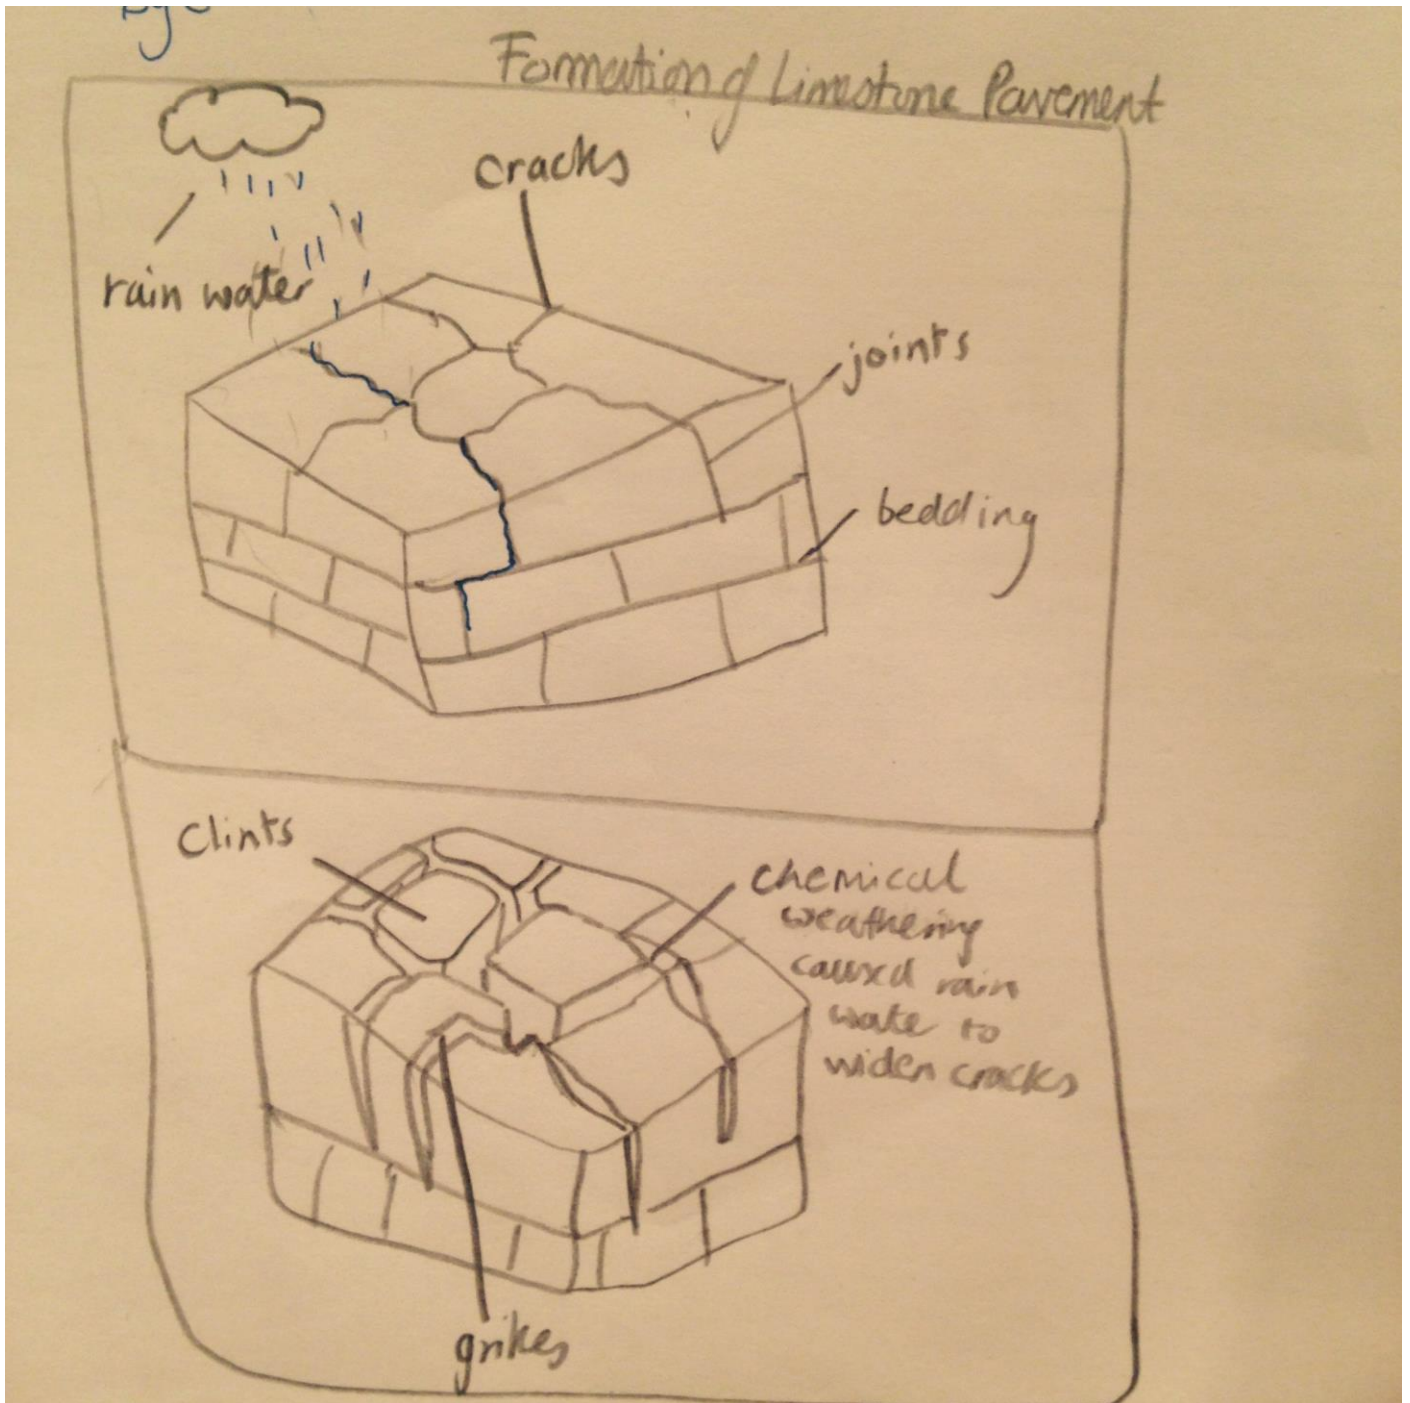 Formation of Limestone Pavement
cracks
rain water
joints
bedding
Clints
chemical
weathering
caused rain
wate to
widen cracks
grikes